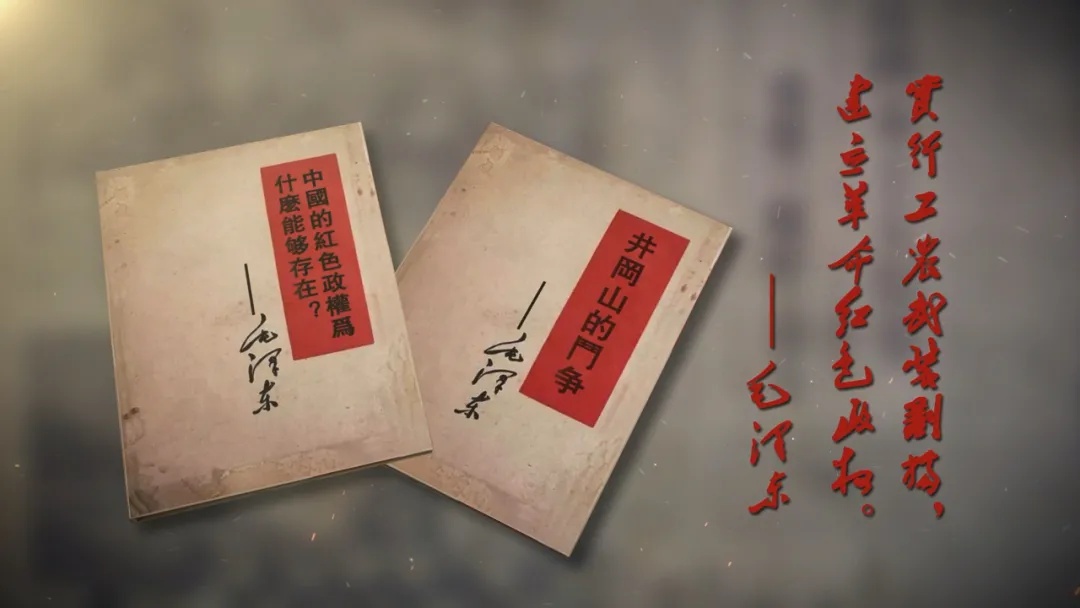 中國的紅色政權爲
什麽能够存在？
——毛泽东
井岡山的鬥争
——毛泽东
实行工农武装割据，
建立革命红色政权。
——毛泽东